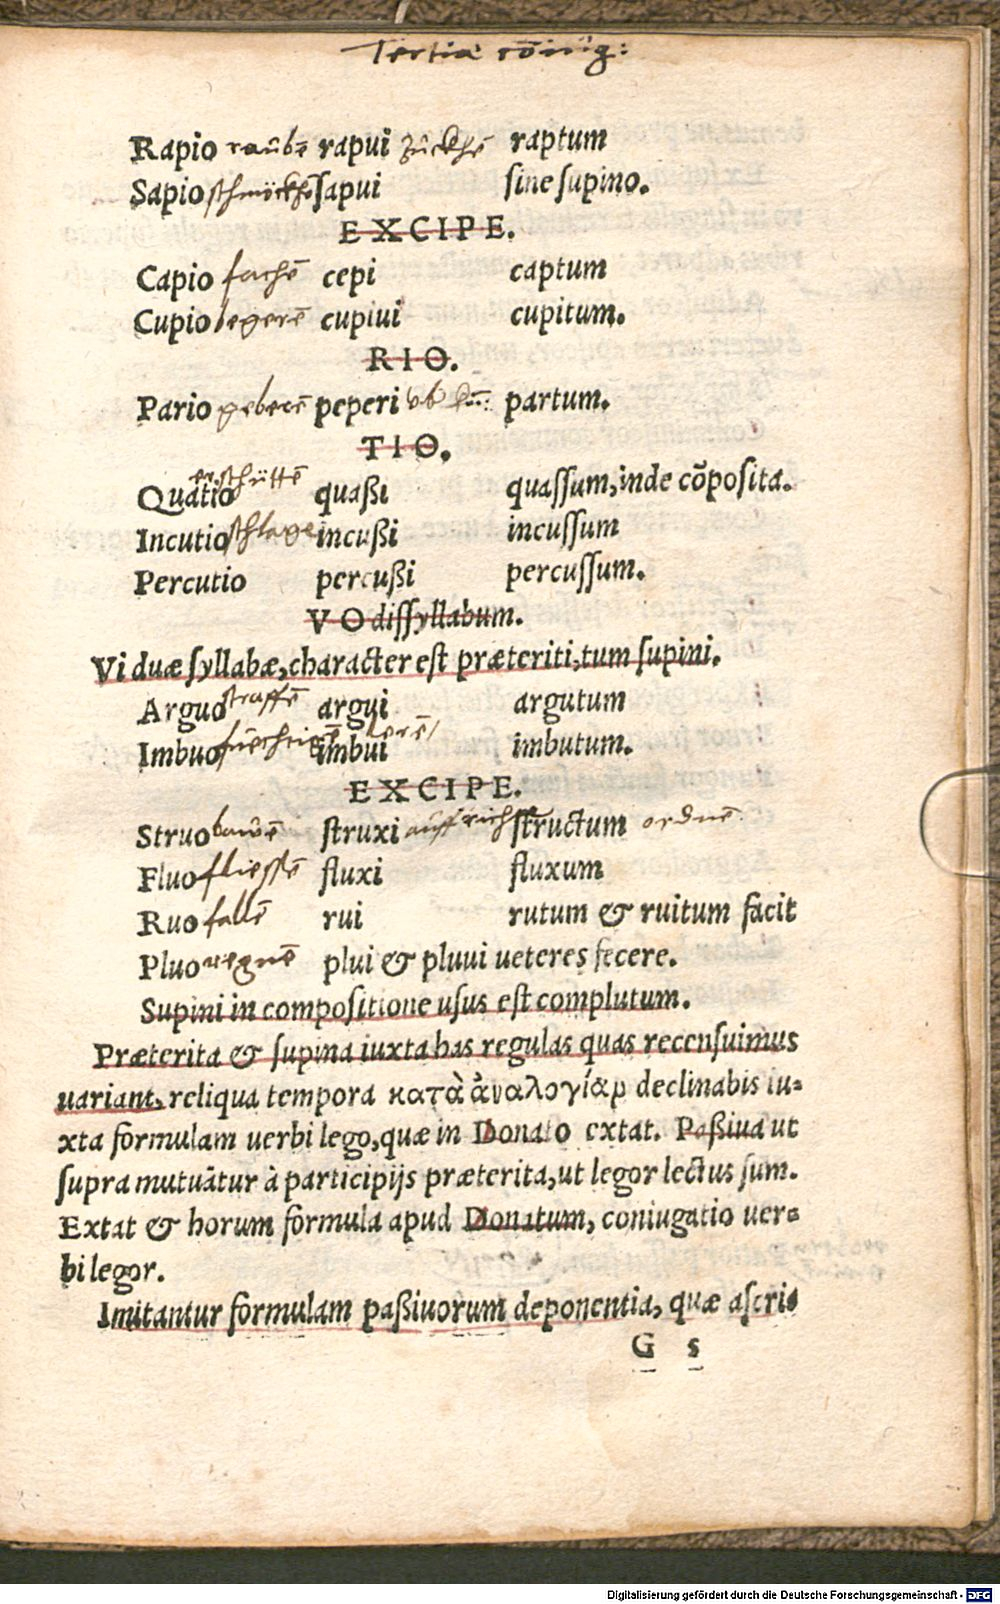 Tertiæ cōiug:
Rapio raubē rapui zuckhē raptum
Sapio schmöckhē sapui sine supino.
EXCIPE.
Capio fachē cepi captum
Cupio begerē cupiui cupitum.
RIO.
Pario geberē peperi partum.
TIO.
erschüttē
Quatio quaßi quassum, inde cōposita.
Incutio schlage incußi incussum
Percutio percußi percussum.
VO dissyllabum.
Vi duæ syllabæ, character est præteriti, tum supini.
Arguo straffē argui argutum
Imbuo lerē imbui imbutum.
EXCIPE.
Struo bawē struxi auffrichtē structum ordnē
Fluo fliessē fluxi fluxum
Ruo fallē rui rutum & ruitum facit
Pluo regnē plui & pluui ueteres fecere.
Supini in compositione usus est complutum.
Præterita & supina iuxta has regulas quas recensuimus
uariant, reliqua tempora κατὰ ἀναλογίαν declinabis iu-
xta formulam uerbi lego, quæ in Donato extat. Paßiua ut
supra mutuātur à participijs præterita, ut legor lectus sum.
Extat & horum formula apud Donatum, coniugatio uer-
bi legor.
Imitantur formulam paßiuorum deponentia, quæ ascri-
G 5
Digitalisierung gefördert durch die Deutsche Forschungsgemeinschaft - DFG